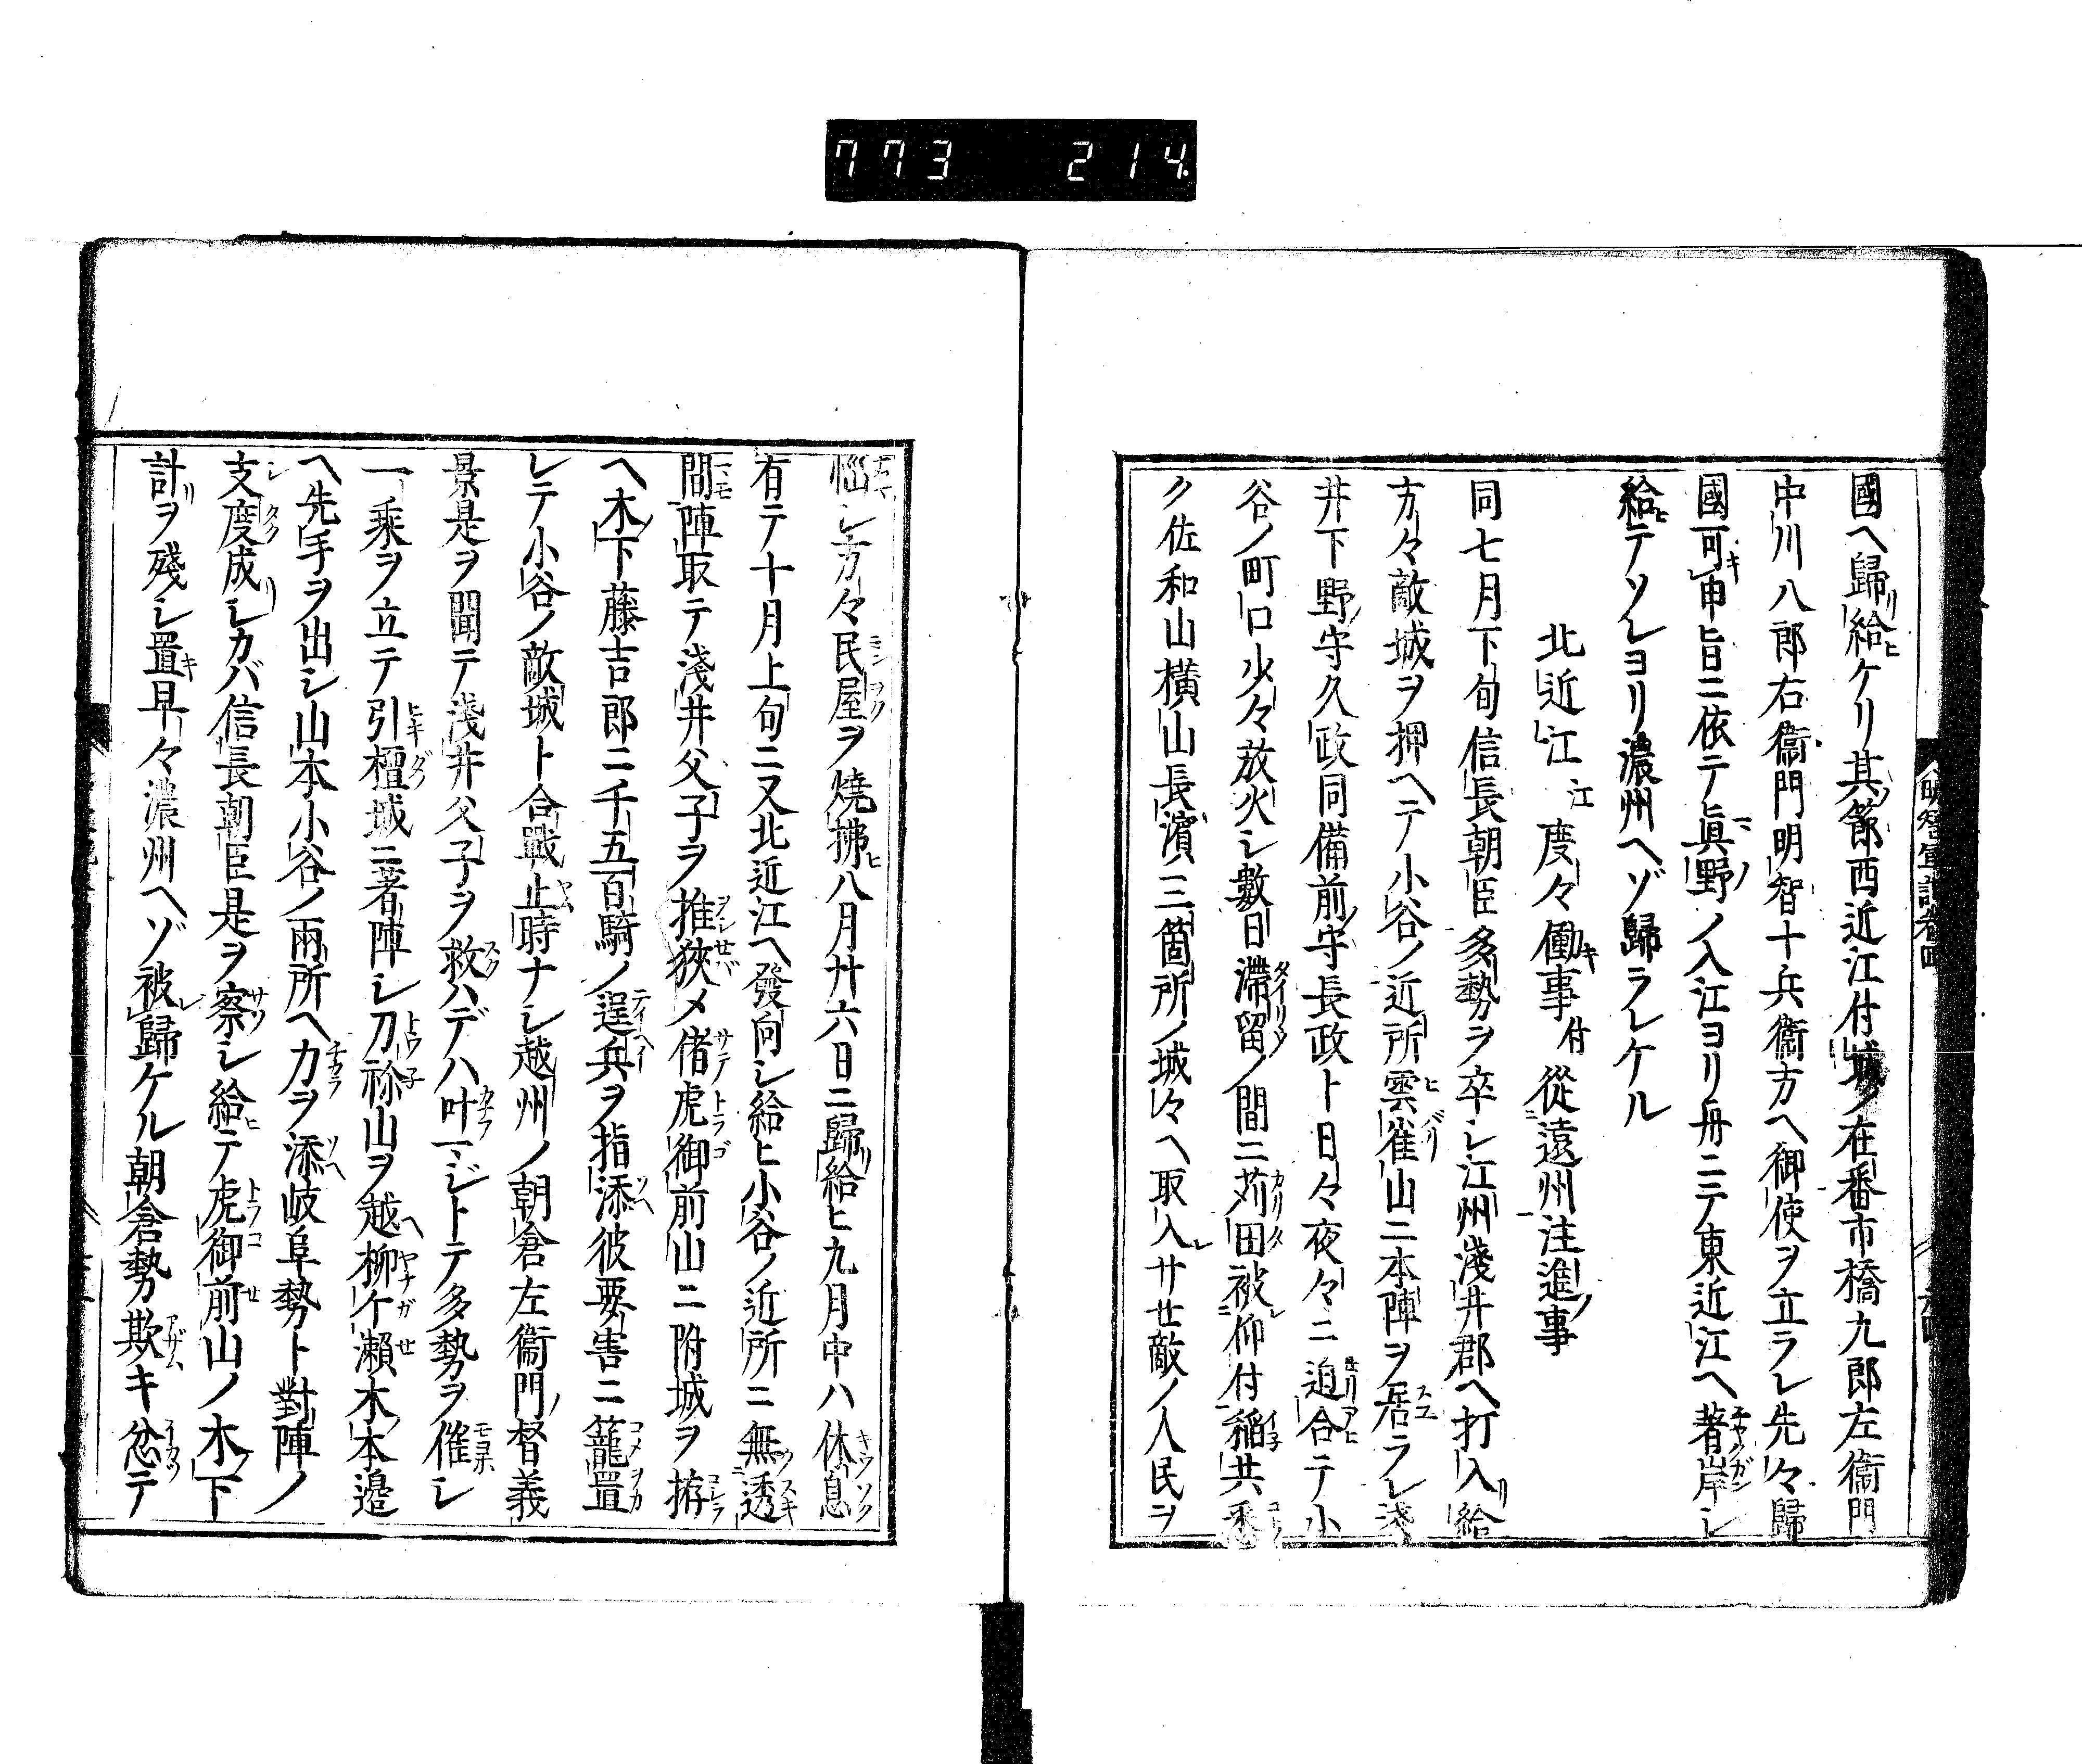 773 214.
國ヘ歸リ給ヒケリ其節西近江付城ノ在番市橋九郎左衞門
中川八郎右衞門明智十兵衞方ヘ御使ヲ立ラレ先々歸
國可キ申旨ニ依テ眞野ノ入江ヨリ舟ニテ東近江ヘ著岸シ
給ヒテソレヨリ濃州ヘゾ歸ラレケル
北近江江度々働キ事付從遠州注進ノ事
同七月下旬信長朝臣多勢ヲ卒シ江州淺井郡ヘ打入リ給
方々敵城ヲ押ヘテ小谷ノ近所雲雀山ニ本陣ヲ居ラレ淺
井下野守久政同備前ノ守長政ト日々夜々ニ迫合テ小
谷ノ町口少々放火シ數日滯留ノ間ニ苅田被レ仰付稲共悉
ク佐和山橫山長濱三箇所ノ城々ヘ取入レサセ敵ノ人民ヲ
惱シ方々民屋ヲ燒拂ヒ八月廿六日ニ歸リ給ヒ九月中ハ休息
有テ十月上旬ニ又北近江ヘ發向シ給ヒ小谷ノ近所ニ無透
間陣取テ淺井父子ヲ推狹メ偖虎御前山ニ附城ヲ拵
ヘ木ノ下藤吉郎ニ千五百騎ノ逞兵ヲ指添彼要害ニ籠置
レテ小谷ノ敵城ト合戰止時ナシ越州ノ朝倉左衞門ノ督義
景是ヲ聞テ淺井父子ヲ救ハデハ叶マジトテ多勢ヲ催シ
一乘ヲ立テ引檀城ニ著陣シ刀祢山ヲ越ヘ柳ケ瀨木ノ本邊
ヘ先手ヲ出シ山本小谷ノ兩所ヘ力ヲ添岐阜勢ト對陣ノ
支度成リシカバ信長朝臣是ヲ察シ給ヒテ虎御前山ノ木ノ下
計リヲ殘シ置キ早々濃州ヘゾ被レ歸ケル朝倉勢欺キ忿テ